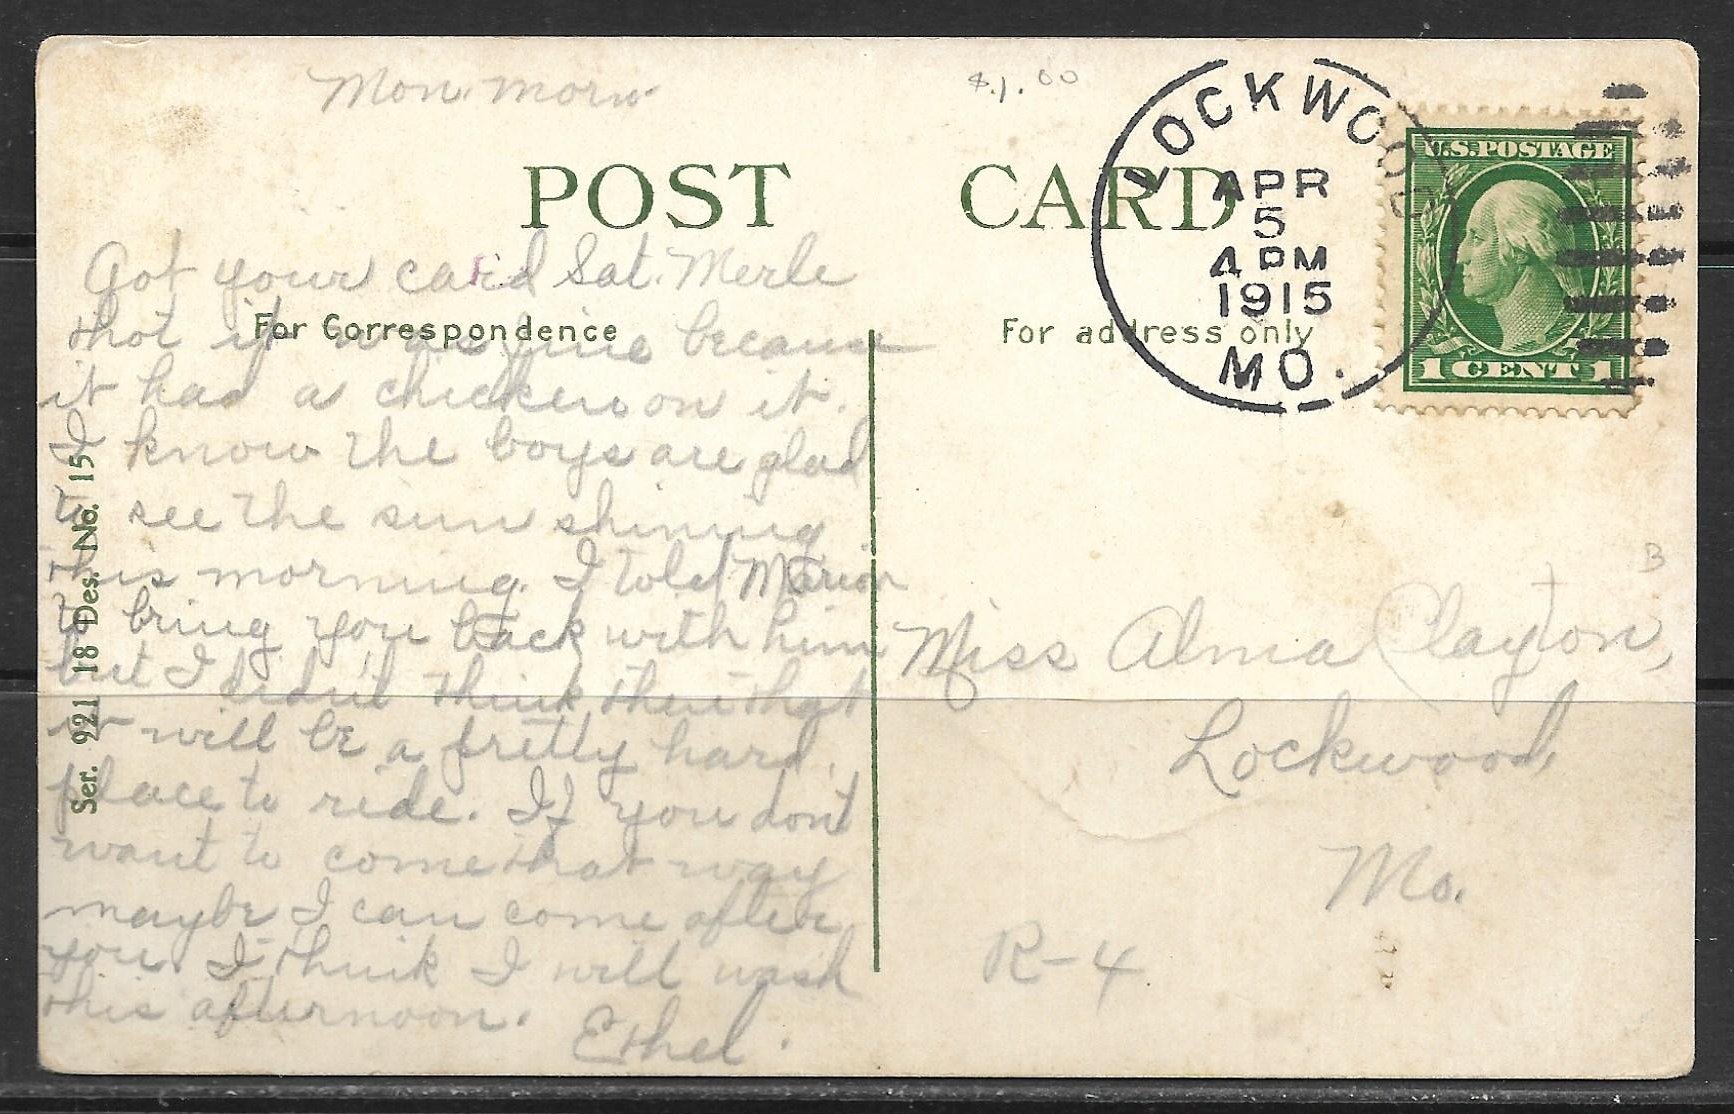 Mon. morn
$.1.00
LOCKWOOD
APR
5
4 PM
1915
MO.
U.S.POSTAGE
1 CENT 1
POST CARD
For Correspondence
For address only
Got your card Sat. Merle
thot it was fine because
it had a chicken on it.
I know the boys are glad
to see the sun shining
this morning. I told Marion
to bring you back with him
but I didn't think then that
it will be a pretty hard
place to ride. If you dont
want to come that way
maybe I can come after
you. I think I will wash
this afternoon.
Ethel.
Ser. 921 18 Des. No. 15
B
Miss Alma Clayton,
Lockwood,
Mo.
R-4